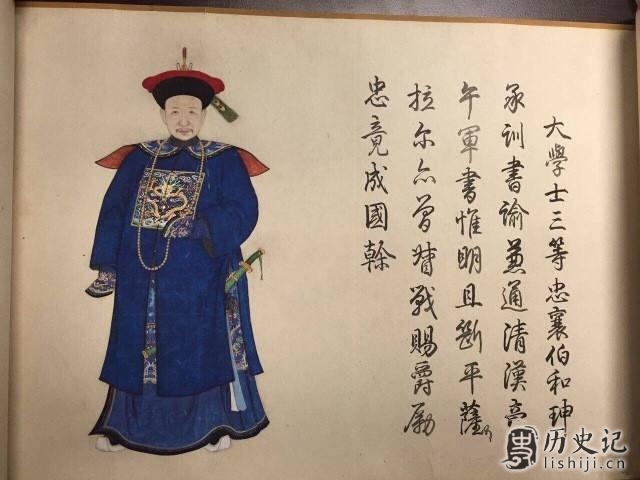 大學士三等忠襄伯和珅
承訓書諭兼通清漢旁
午軍書惟明且斷平薩
拉尔亦曾督戰賜爵励
忠竟成國幹
历史记
lishiji.cn